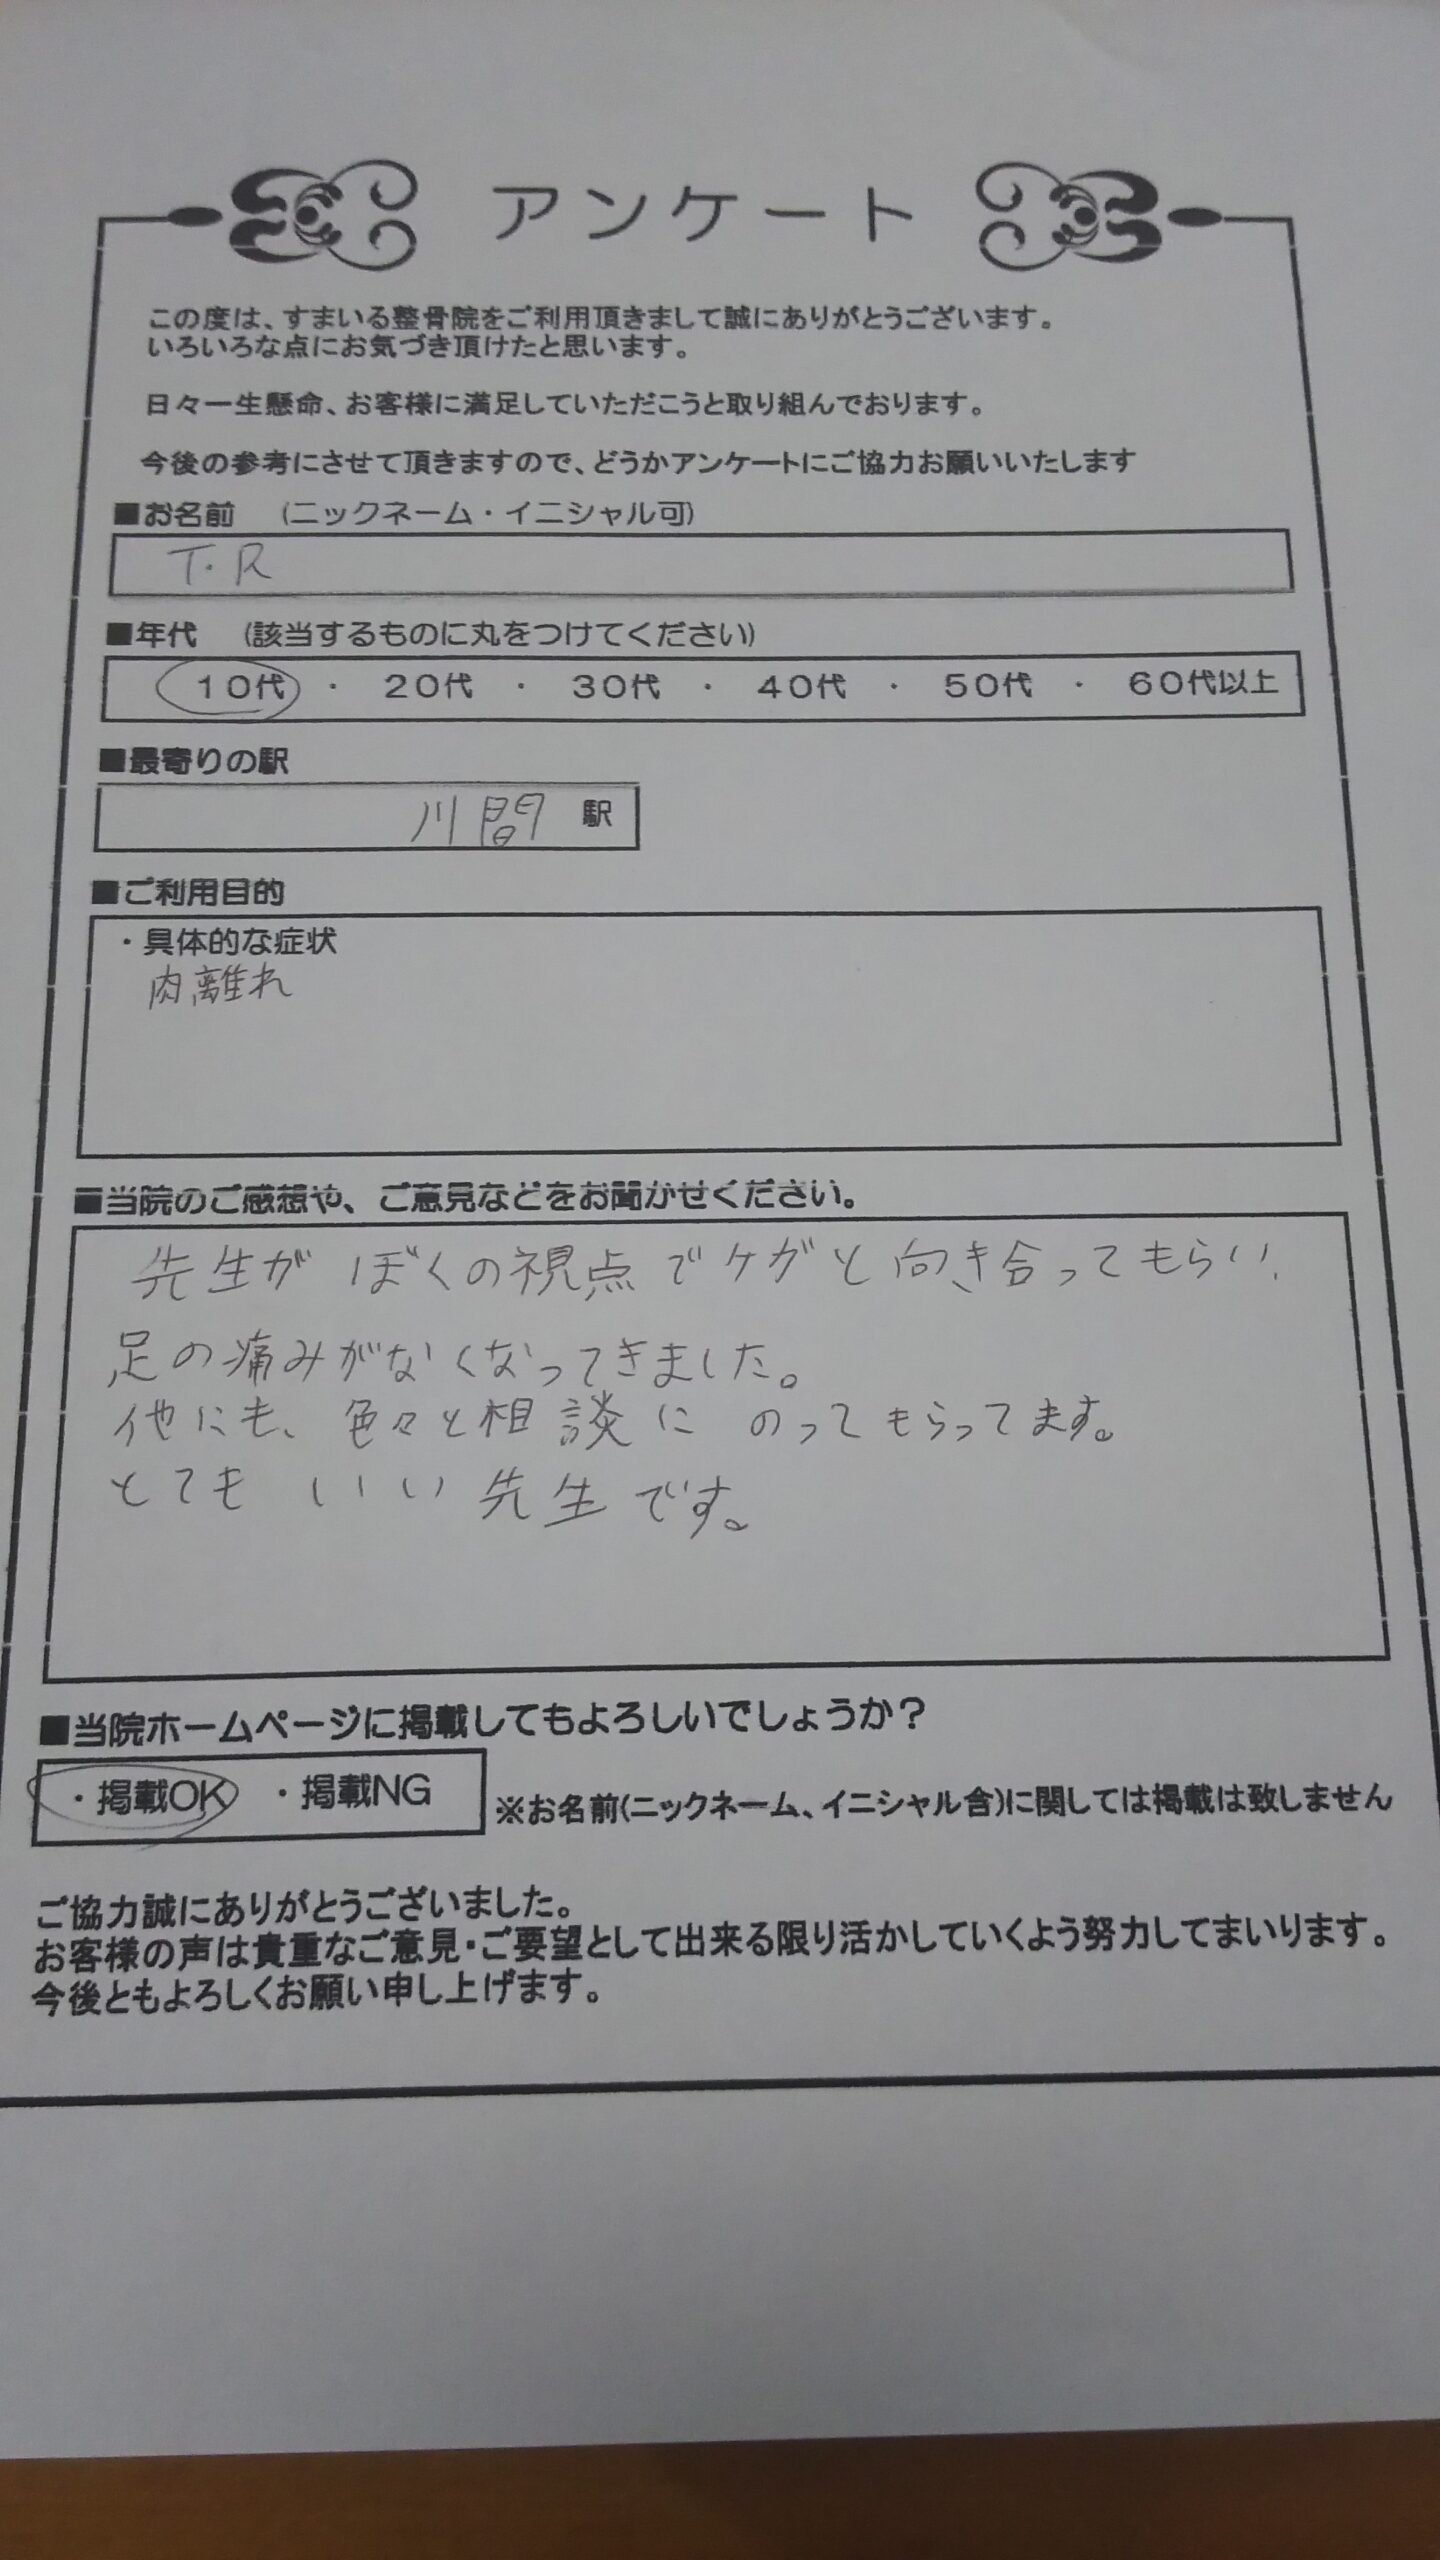 アンケート
この度は、すまいる整骨院をご利用頂きまして誠にありがとうございます。
いろいろな点にお気づき頂けたと思います。
日々一生懸命、お客様に満足していただこうと取り組んでおります。
今後の参考にさせて頂きますので、どうかアンケートにご協力お願いいたします
■お名前 (ニックネーム・イニシャル可)
T.R
■年代 (該当するものに丸をつけてください)
10代 ・ 20代 ・ 30代 ・ 40代 ・ 50代 ・ 60代以上
■最寄りの駅
川間 駅
■ご利用目的
・具体的な症状
肉離れ
■当院のご感想や、ご意見などをお聞かせください。
先生がぼくの視点でケガと向き合ってもらい、
足の痛みがなくなってきました。
他にも、色々と相談にのってもらってます。
とてもいい先生です。
■当院ホームページに掲載してもよろしいでしょうか？
・掲載OK ・掲載NG ※お名前(ニックネーム、イニシャル含)に関しては掲載は致しません
ご協力誠にありがとうございました。
お客様の声は貴重なご意見・ご要望として出来る限り活かしていくよう努力してまいります。
今後ともよろしくお願い申し上げます。